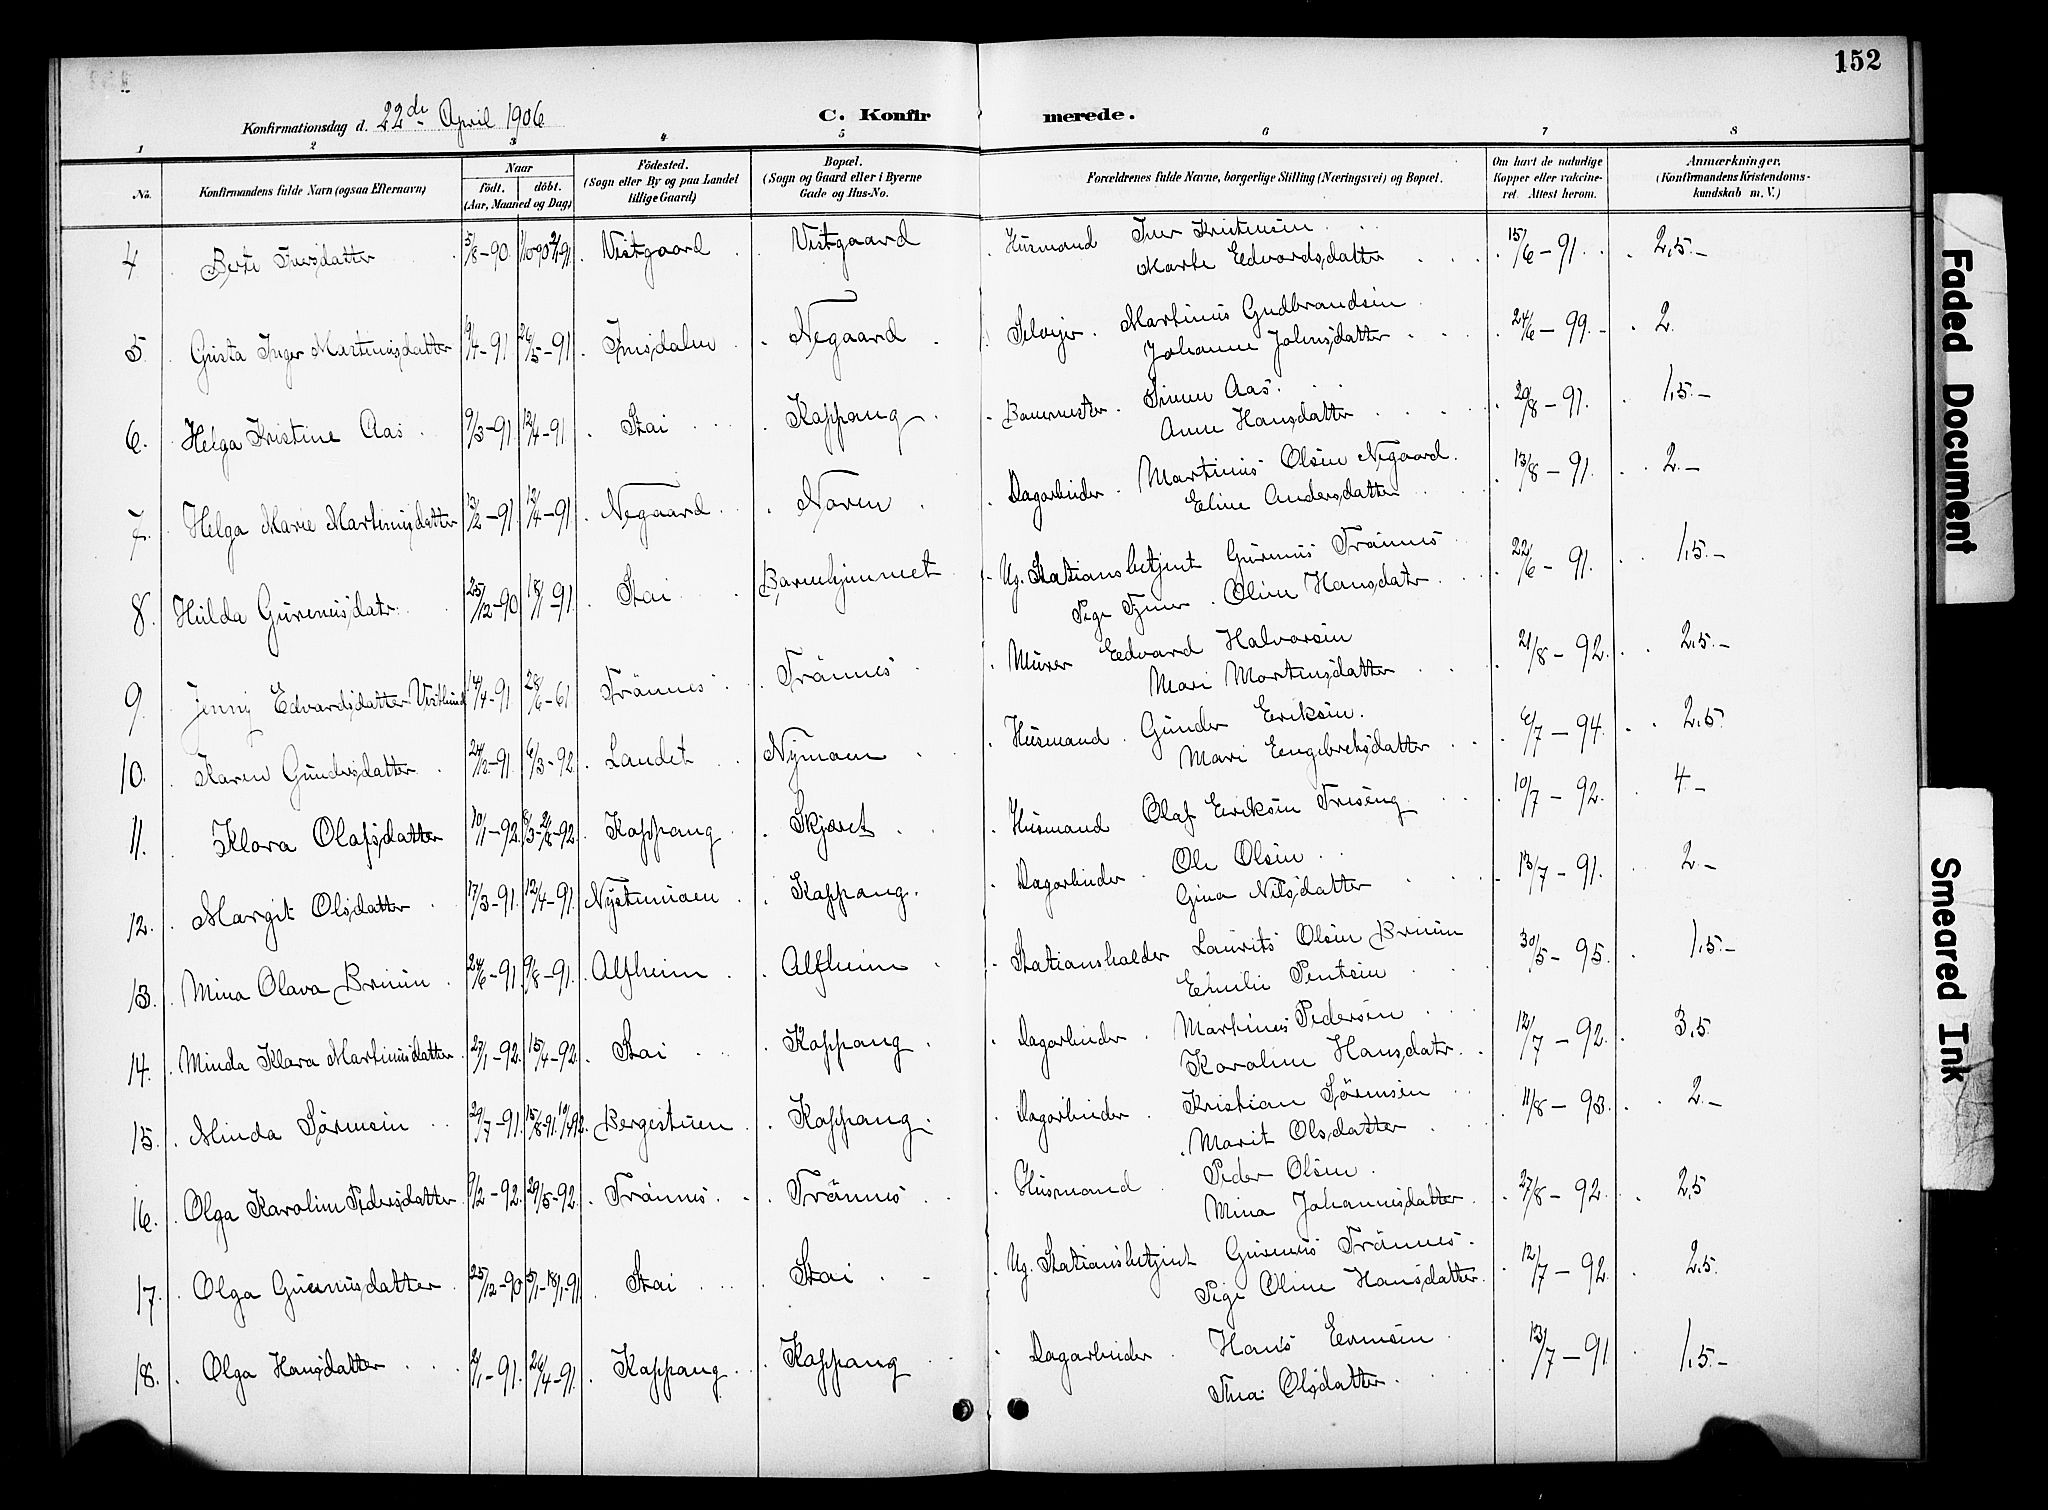 152
Konfirmationsdag d. 22de April 1906
C. Konfirmerede.
1 2 3 4 5 6 7 8
No. Konfirmandens fulde Navn (ogsaa Efternavn) Naar født. døbt. (Aar, Maaned og Dag) Fødested. (Sogn eller By og paa Landet tillige Gaard) Bopæl. (Sogn og Gaard eller i Byerne Gade og Hus-No. Forældrenes fulde Navne, borgerlige Stilling (Næringsvei) og Bopæl. Om havt de naturlige Kopper eller vakcineret. Attest herom. Anmærkninger. (Konfirmandens Kristendomskundskab m. V.)
4 Iversdatter 5/8-90 Vestgaard Vestgaard Husmand Iver Kristensen 15/6-91. 2,5.-
Marte Edvardsdatter
5. Inger Martinusdatter 9/4-91 26/5-91 Negaard Selveier. Martinus Gudbrandsen 24/6-99.- 2.
Johanne Johnsdatter
6. Helga Kristine Aas 9/3-91. 12/4-91 Stai Koppang Banemester. Simen Aas. 29/8-91. 1,5.-
Anne Hansdatter
7. Helga Marie Martinusdatter 13/2-91. 12/4-91 Negaard Noren Dagarbeider. Martinus Olsen Negaard. 13/8-91. 2.-
Eline Andersdatter
8. Hulda Gurenusdatr. 25/12-90 18/1-91. Stai Barnehjemmet Ug. Stationsbetjent Gurenus Trønnes 22/6-91. 1,5.-
Pige Oline Hansdatr.
9. Jenny Edvardsdatter Vestlund 14/4-91 28/6-61 Trønnes Trønnes Murer Edvard Halvorsen 21/8-92. 2,5.-
Mari Mortensdatter
10. Karen Gundersdatter 6/3-92. Landet Nymoen Husmand. Gunder Eriksen. 6/7-94. 2,5
Mari Engebretsdatter
11. Klara Olafsdatter 10/1-92. Koppang Skjæret Husmand Olaf Eriksen 10/7-92. 4.-
12. Margit Olsdatter 17/3-91. 12/4-91. Nystumoen Koppang. Dagarbeider Ole Olsen 13/7-91. 2.-
Gina Nilsdatter
13. Mina Olava Bruun 24/6-91 9/8-91. Alfheim Alfheim Stationsholder Laurits Olsen Bruun 30/5-95. 1,5.-
Emilie
14. Minda Klara Martinusdatter 27/1-92. 15/4-92. Stai Koppang Dagarbeider. Martinus Pedersen 12/7-92. 3,5.
Karoline Hansdatr.
15. Minda Sørensen 29/7-91. 15/8-91. Bergestuen Koppang. Dagarbeider Kristian Sørensen 11/8-93. 2.-
Marit Olsdatter
16. Olga Karoline Pedersdatter 9/2-92. 29/5-92. Trønnes Trønnes Husmand Peder Olsen. 27/8-92. 2,5
Mina Johannesdatter
17. Olga Gurenusdatter 25/12-90 5/1-18/1-91. Stai Stai Ug. Stationsbetjent Gurenus Trønnes. 12/7-92. 2,5.
Pige Oline Hansdatter.
18. Olga Hansdatter 2/1-91. 26/4-91. Koppang Koppang Dagarbeider. Hans 13/7-91 1,5.-
Thea Olsdatter.
Faded Document
Smeared Ink